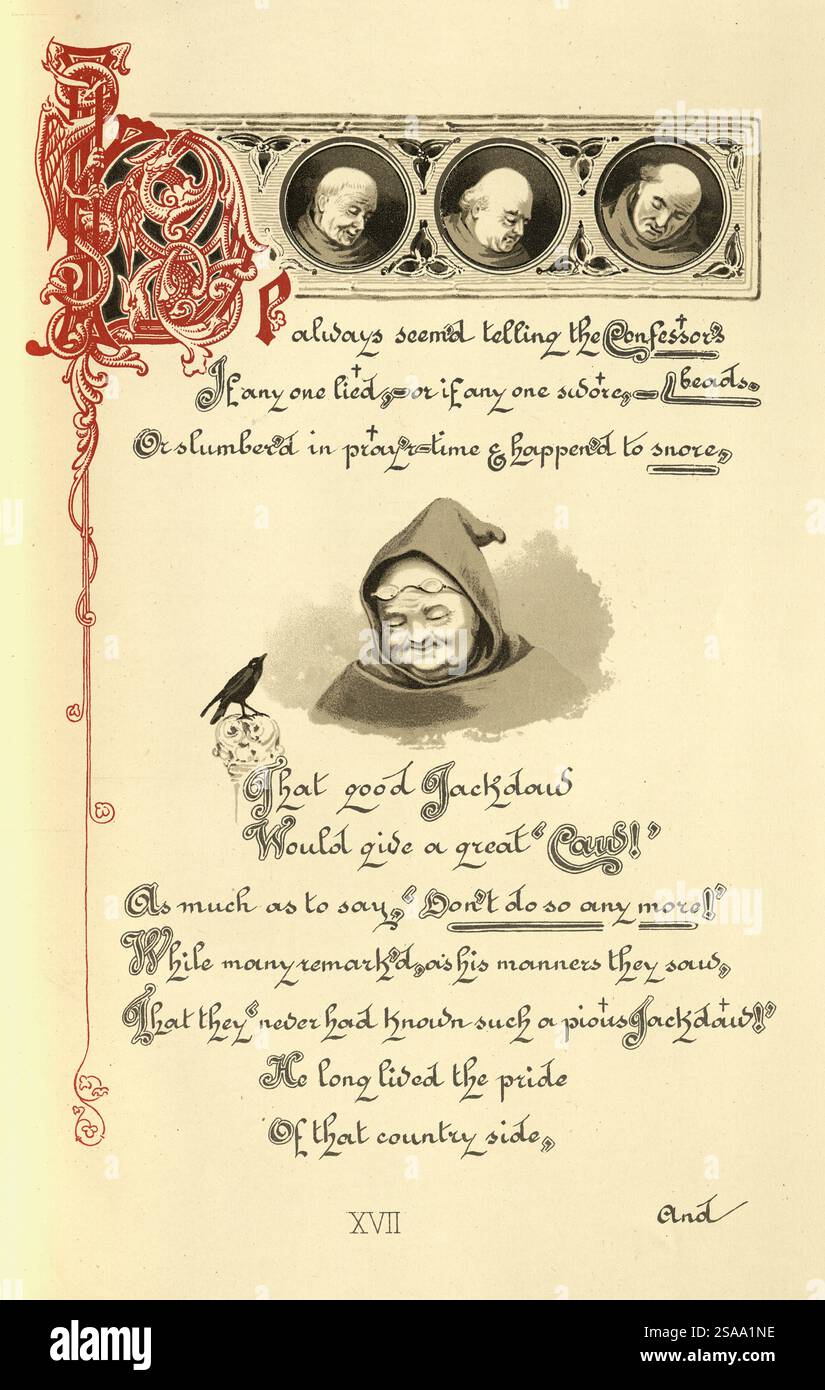 He always seem'd telling the Confessor's
If any one lied,—or if any one swore,— beads.
Or slumber'd in pray'r-time & happen'd to snore,
That good Jackdaw
Would give a great "Caw!"
As much as to say, "Don't do so any more!"
While many remark'd, as his manners they saw,
That they "never had known such a pious Jackdaw!"
He long lived the pride
Of that country side,
And
XVII
alamy
Image ID: 2SAA1NE
www.alamy.com